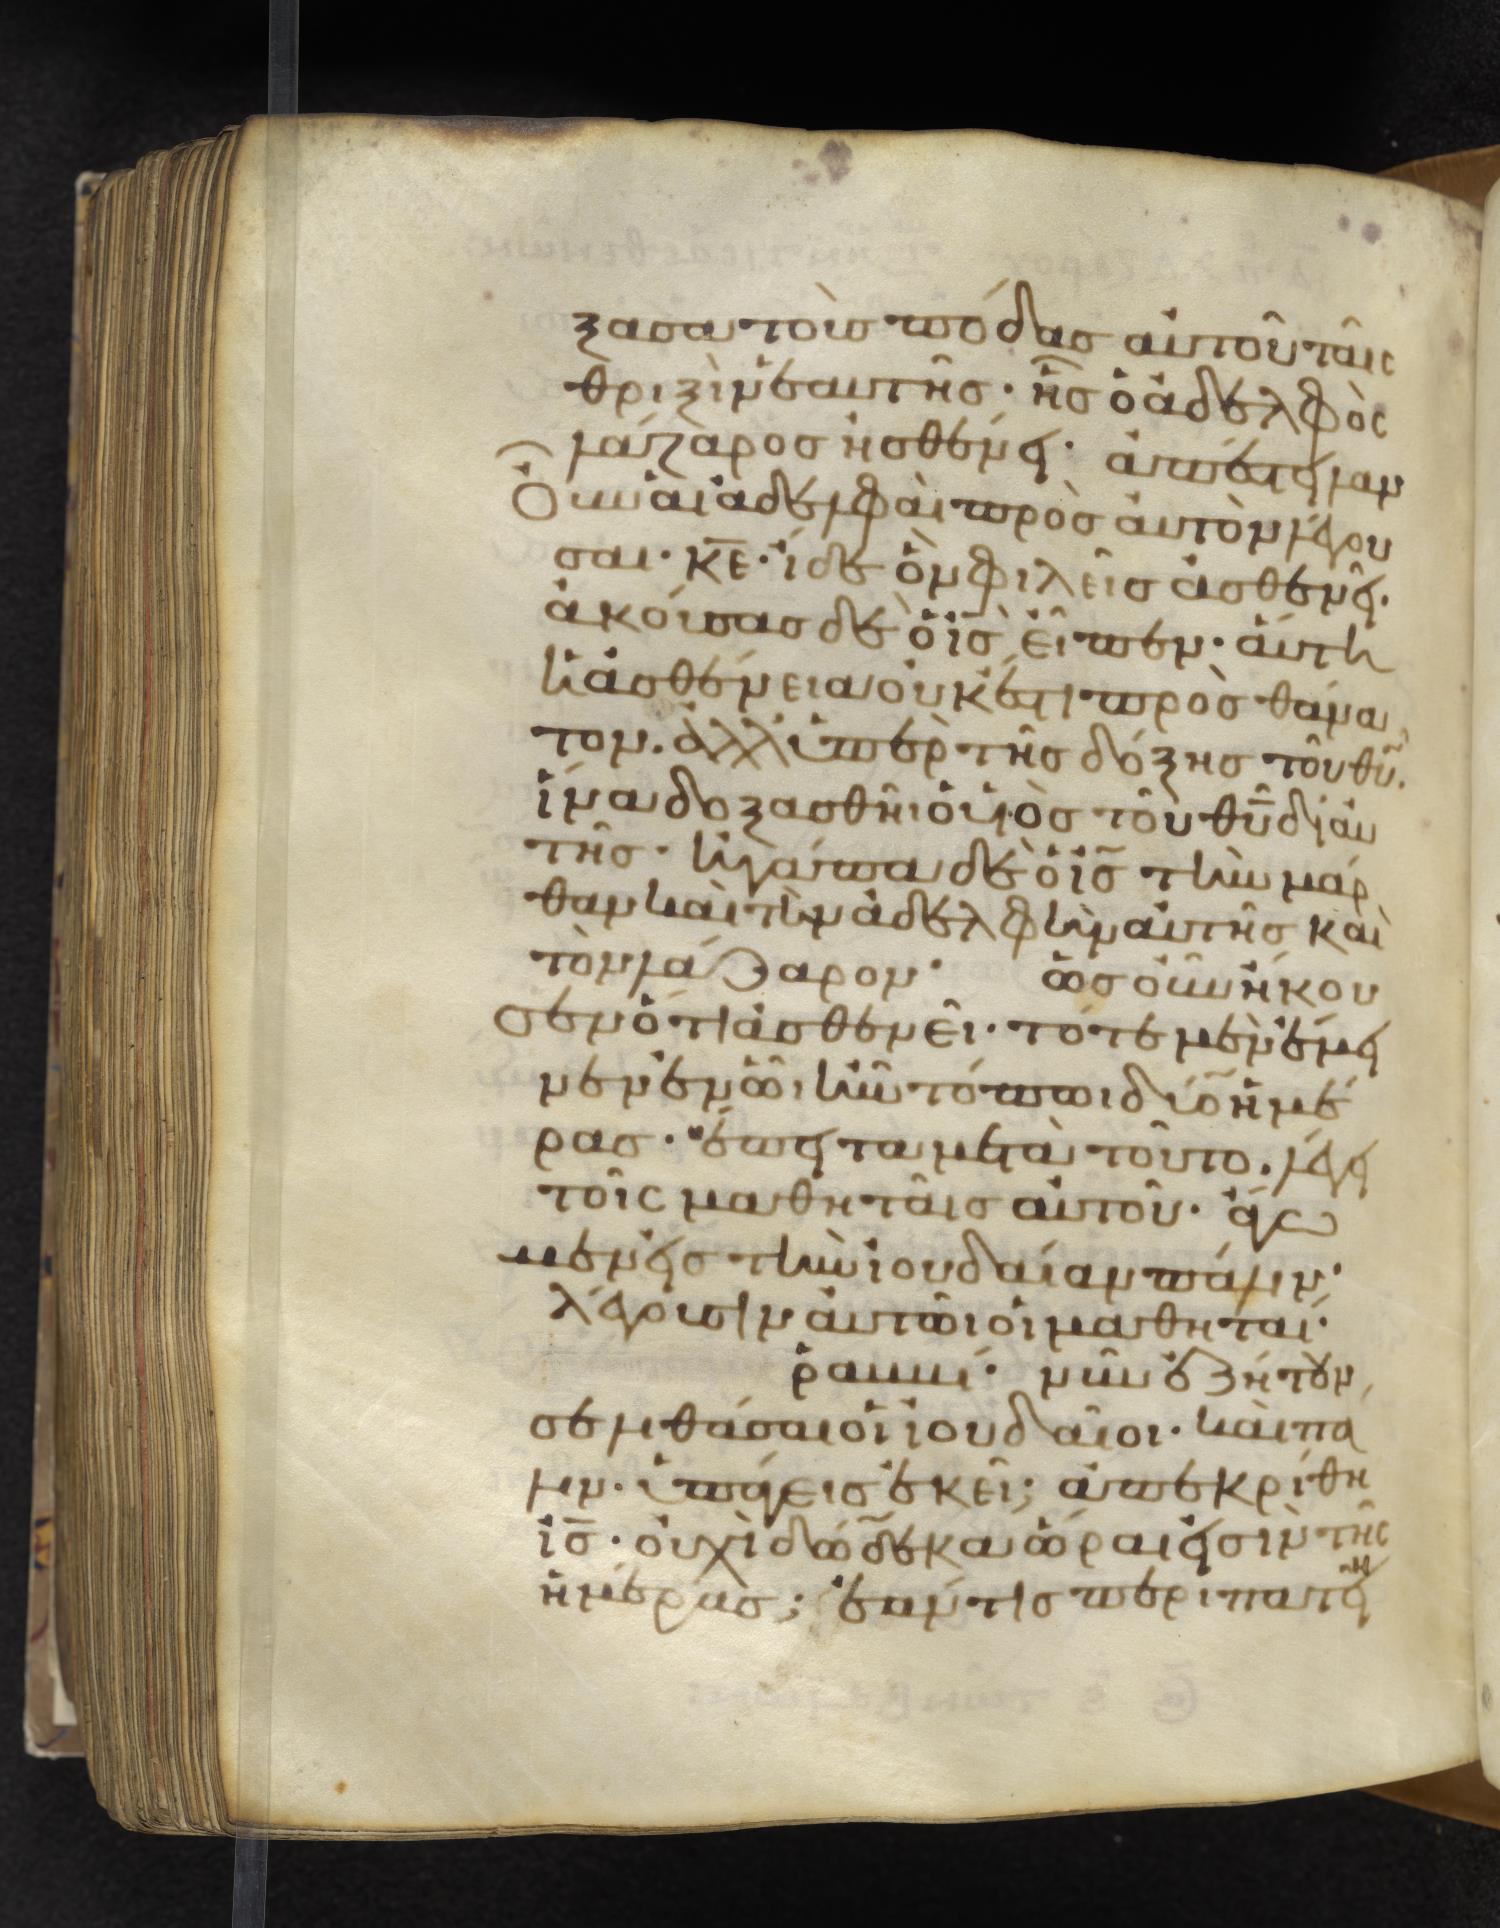 ξασα τοὺς πόδας αὐτοῦ ταῖς
θριξὶν ἑαυτῆς· ἧς ὁ ἀδελφὸς
λάζαρος ἠσθένει· ἀπέστειλαν
Οὖν αἱ ἀδελφαὶ πρὸς αὐτὸν λέγου
σαι· κε̅· ἴδε ὃν φιλεῖς ἀσθενεῖ·
ἀκούσας δὲ ὁ ις̅ εἶπεν· αὕτη
ἡ ἀσθένεια οὐκ ἔστι πρὸς θάνα
τον. ἀλλ' ὑπὲρ τῆς δόξης τοῦ θυ̅.
ἵνα δοξασθῆι ὁ υἱὸς τοῦ θυ̅ δι' αὐ
τῆς· ἠγάπα δὲ ὁ ις̅ τὴν μάρ
θαν καὶ τὴν ἀδελφὴν αὐτῆς καὶ
τὸν λάζαρον· ὡς οὖν ἤκου
σεν ὅτι ἀσθενεῖ· τότε μὲν ἔμει
νεν ἐν ὧι ἦν τόπωι δύο ἡμέ
ρας· ἔπειτα μετὰ τοῦτο. λέγει
τοῖς μαθηταῖς αὐτοῦ· ἄγω
μεν εἰς τὴν ἰουδαίαν πάλιν·
λέγουσιν αὐτῶι οἱ μαθηταί·
ῥαββί· νῦν ἐζήτουν
σε λιθάσαι οἱ ἰουδαῖοι· καὶ πά
λιν· ὑπάγεις ἐκεῖ; ἀπεκρίθη
ις̅· οὐχὶ δώδεκα ὧραι εἰσὶν τῆς
ἡμέρας; ἐάν τις περιπατῆ